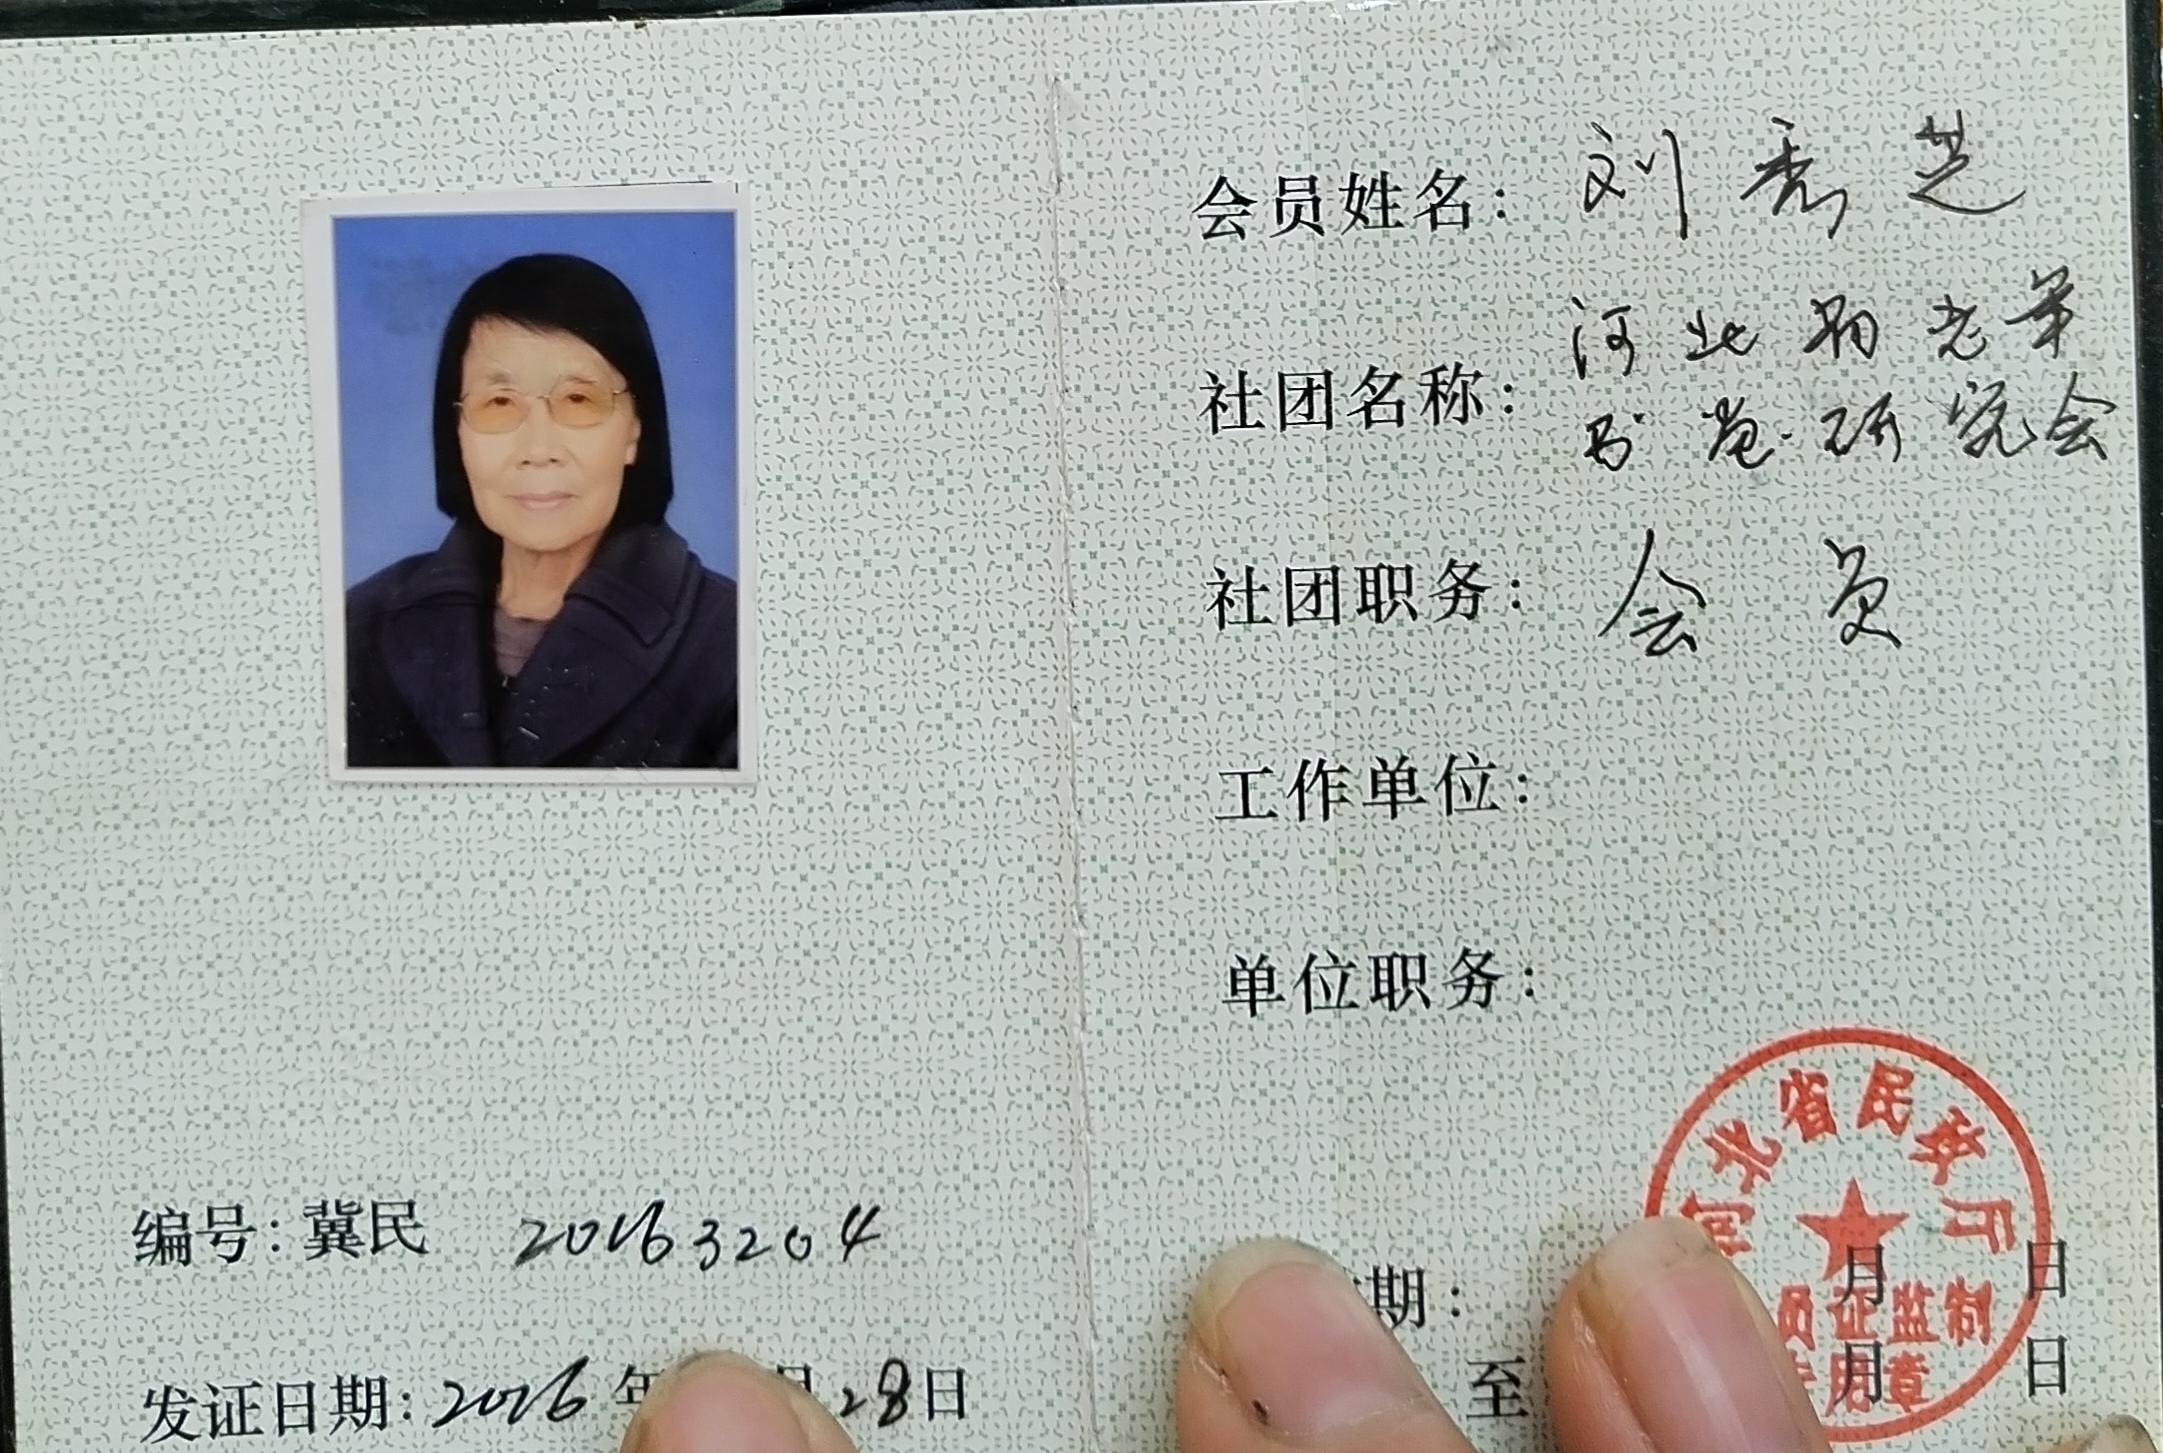 编号：冀民 20163204
发证日期：2016年 月28日
会员姓名：刘秀芝
社团名称：河北省老年
书画研究会
社团职务：会员
工作单位：
单位职务：
期：
月 日
至 月 日
河北省民政厅
员证监制
专用章